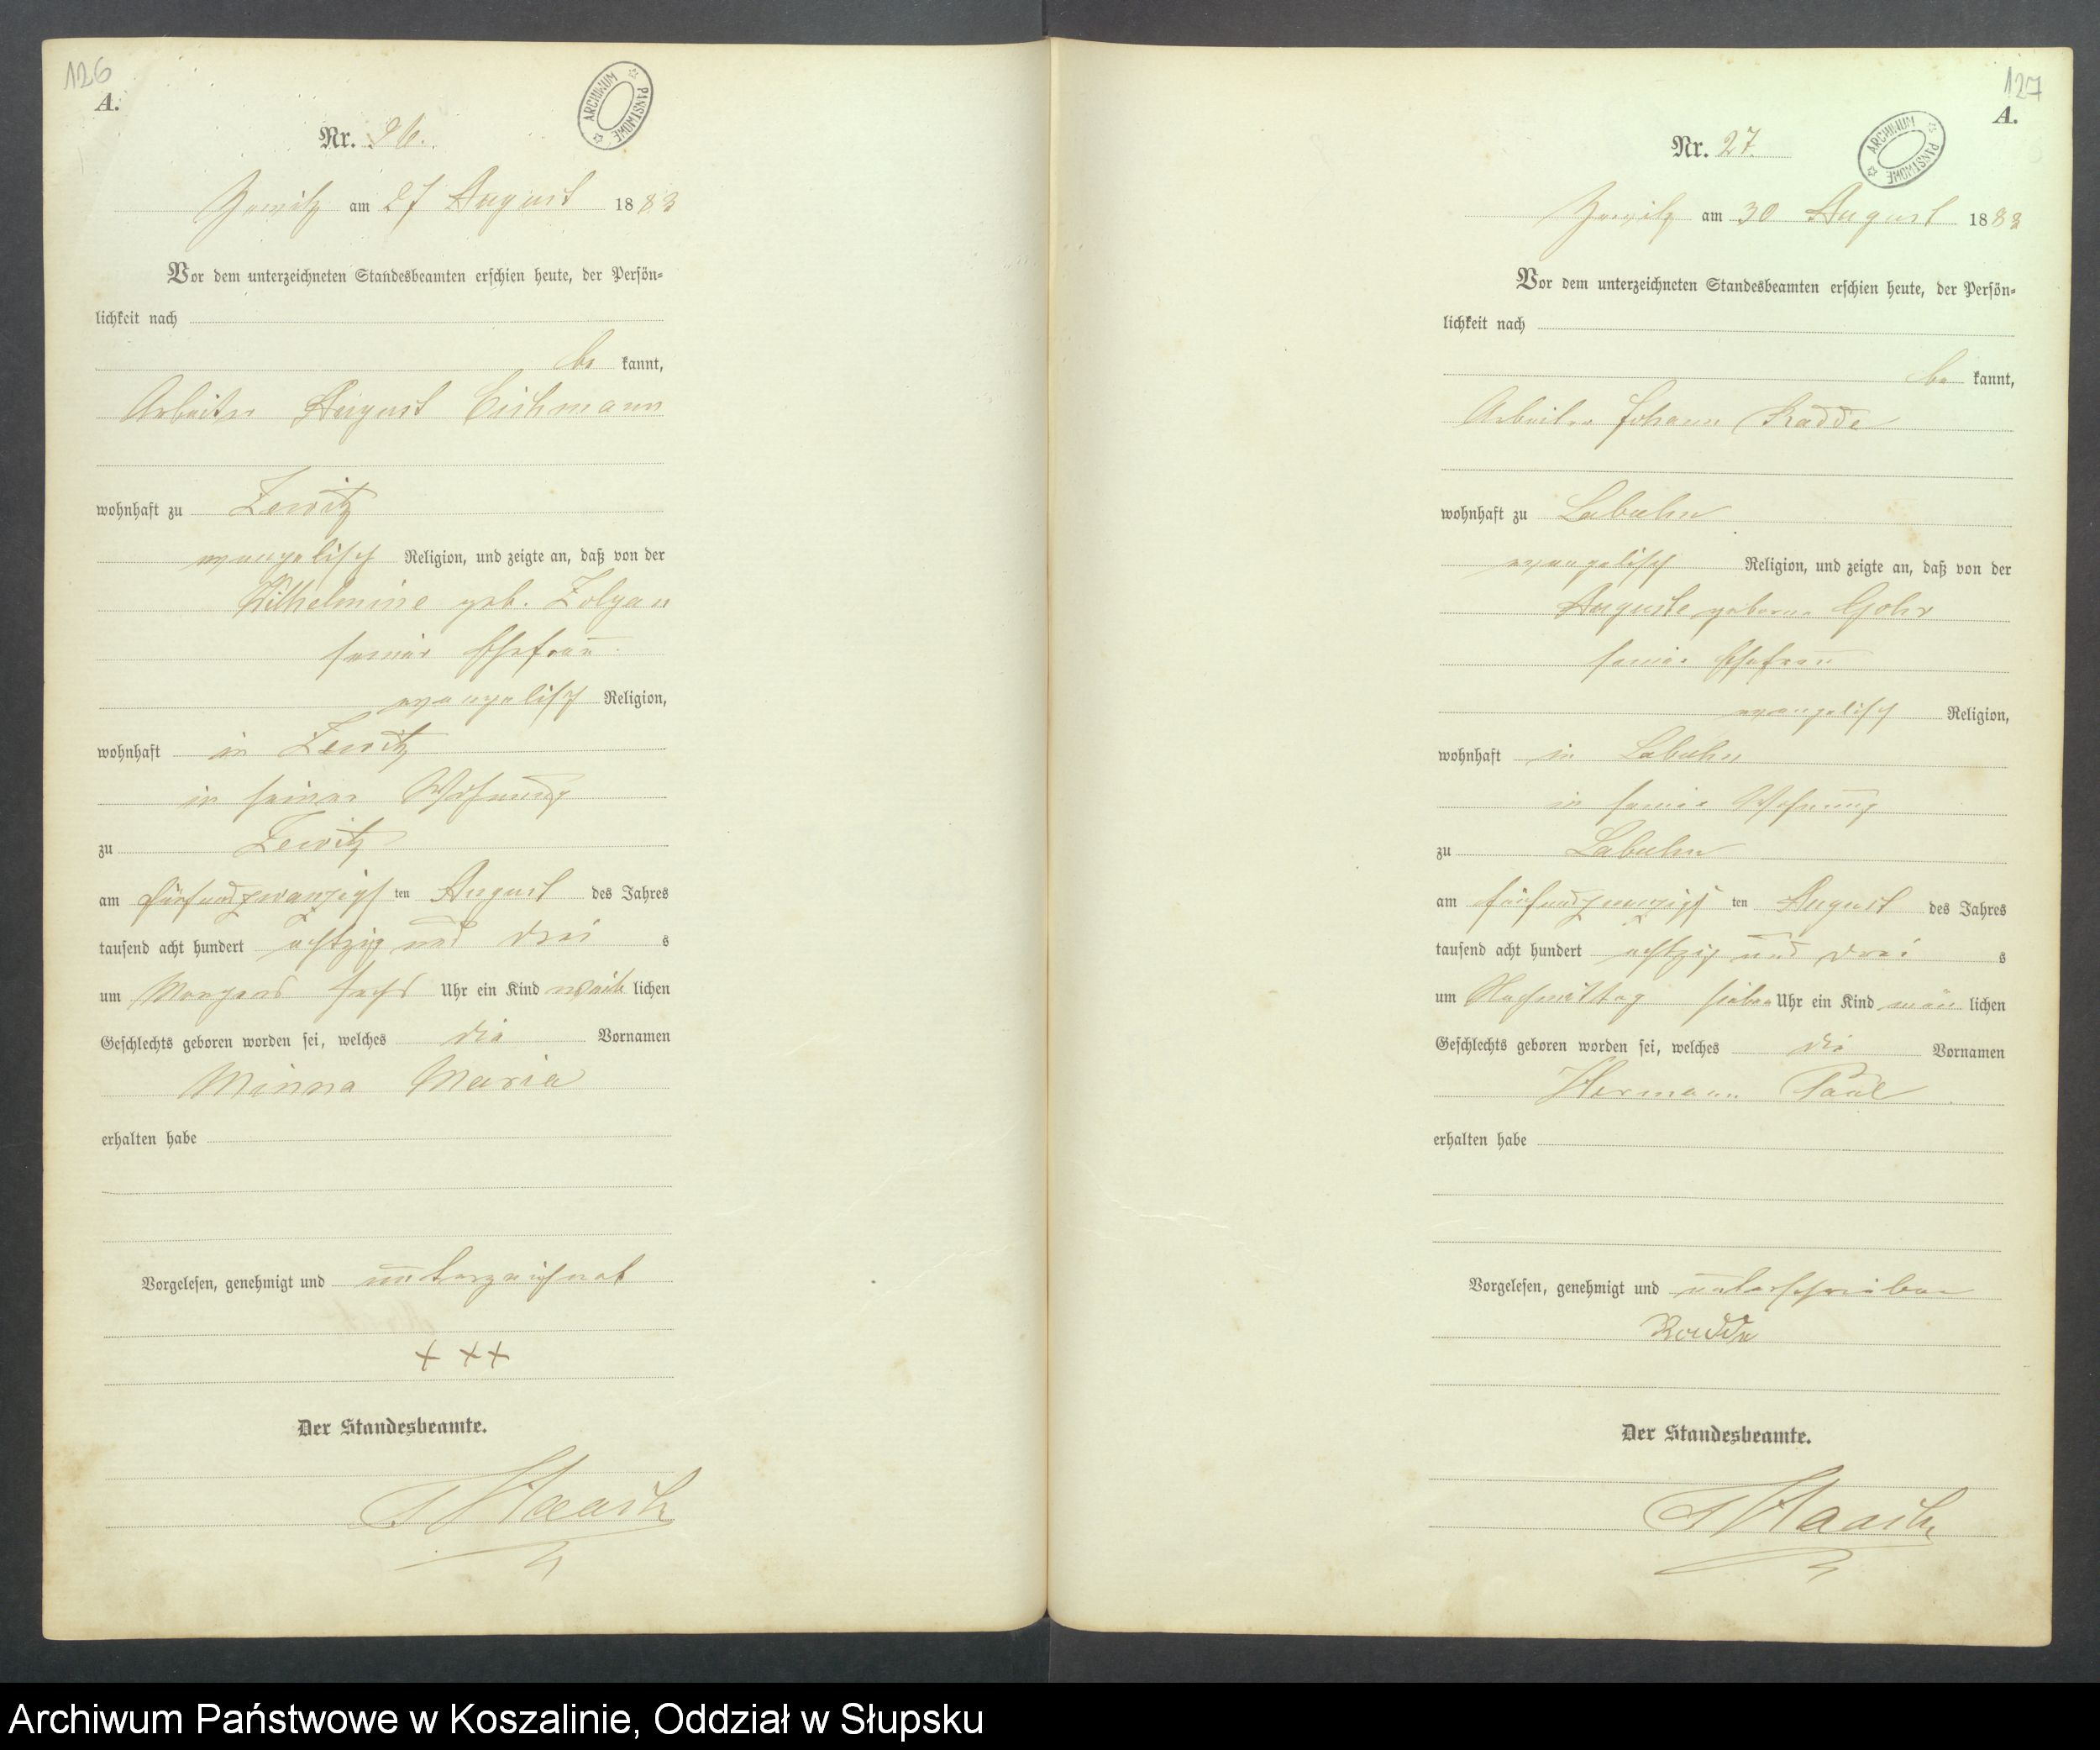 126
A.
ARCHIWUM PAŃSTWOWE
Nr. 26.
Zewitz am 27 August 1883
Vor dem unterzeichneten Standesbeamten erschien heute, der Persön-
lichkeit nach
be kannt,
Arbeiter August Eichmann
wohnhaft zu Zewitz
evangelisch Religion, und zeigte an, daß von der
Wilhelmine geb.
seiner Ehefrau
evangelisch Religion,
wohnhaft in Zewitz
in seiner Wohnung
zu Zewitz
am fünfundzwanzigs ten August des Jahres
tausend acht hundert achtzig und drei s
um Morgens sechs Uhr ein Kind weib lichen
Geschlechts geboren worden sei, welches die Vornamen
Minna Maria
erhalten habe
Vorgelesen, genehmigt und unterzeichnet
+ + +
Der Standesbeamte.
127
A.
ARCHIWUM PAŃSTWOWE
Nr. 27.
Zewitz am 30 August 1883
Vor dem unterzeichneten Standesbeamten erschien heute, der Persön-
lichkeit nach
be kannt,
Arbeiter Johann Radde
wohnhaft zu Labuhn
evangelisch Religion, und zeigte an, daß von der
Auguste geborne Gohr
seiner Ehefrau
evangelisch Religion,
wohnhaft in Labuhn
in seiner Wohnung
zu Labuhn
am fünfundzwanzigs ten August des Jahres
tausend acht hundert achtzig und drei s
um Nachmittag sieben Uhr ein Kind män lichen
Geschlechts geboren worden sei, welches die Vornamen
Hermann Paul
erhalten habe
Vorgelesen, genehmigt und unterschrieben
Radde
Der Standesbeamte.
Archiwum Państwowe w Koszalinie, Oddział w Słupsku